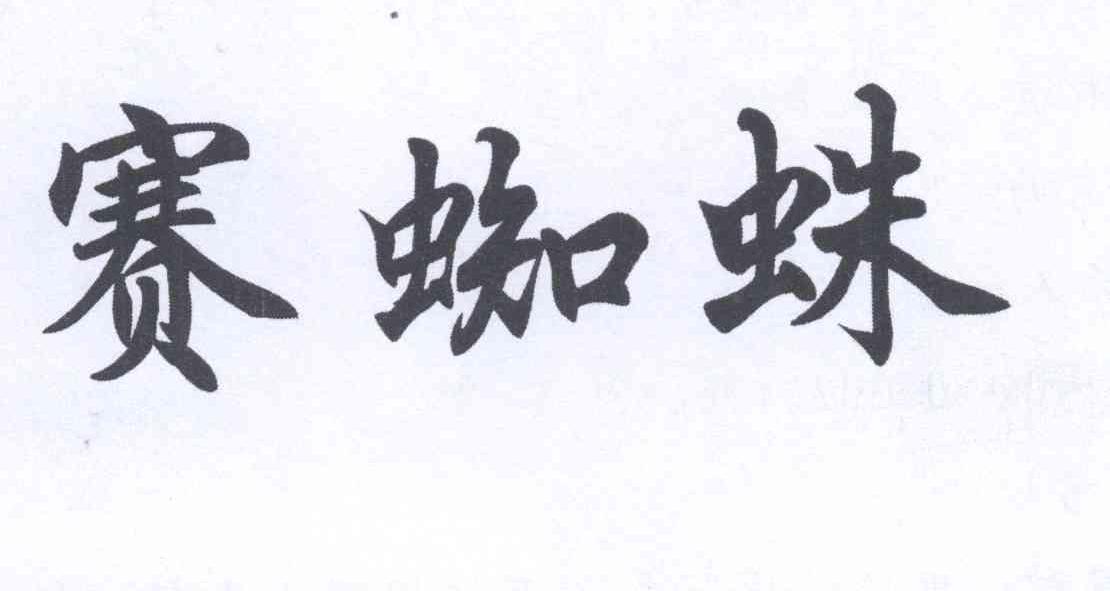 赛蜘蛛